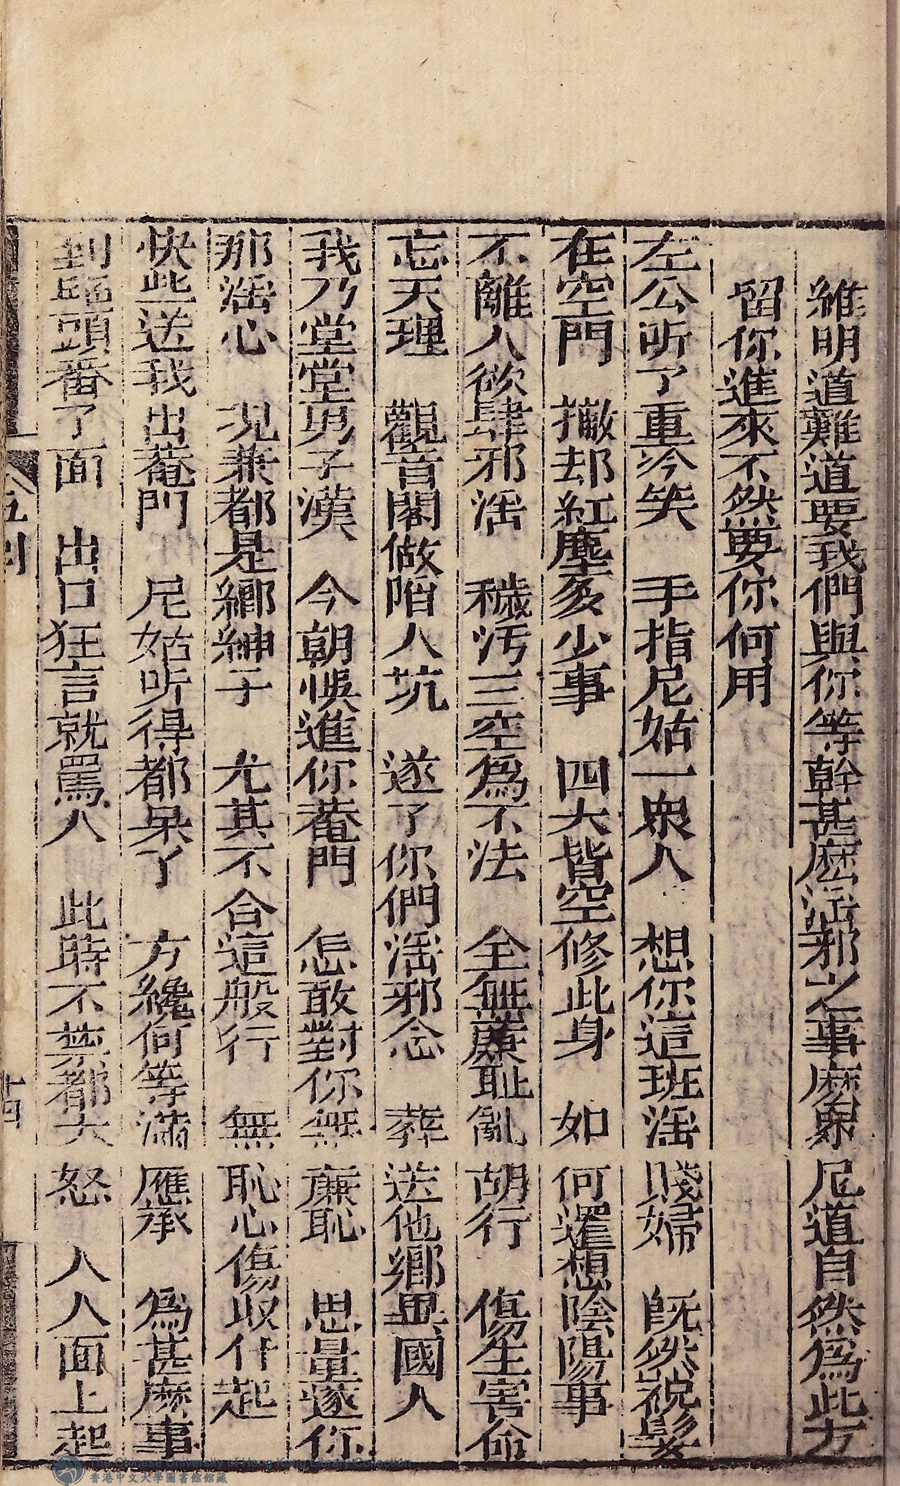 維明道難道要我們與你等幹甚麽滛邪之事麽衆尼道自然為此方
留你進來不然要你何用
左公听了重冷笑　手指尼姑一衆人　想你這班滛賤婦　旣然祝髪
在空門　撇却紅塵多少事　四大皆空修此身　如何還想陰陽事
不離人欲肆邪滛　穢汚三空為不法　全無廉耻亂胡行　傷生害命
忘天理　觀音閣做陷人坑　遂了你們滛邪念　葬送他鄉異國人
我乃堂堂男子漢　今朝悞進你菴門　怎敢對你無廉恥　思量遂你
那滛心　况兼都是鄉紳子　尤其不合這般行　無恥心傷収什起
快些送我出菴門　尼姑听得都呆了　方纔何等滿應承　為甚麽事
到臨頭番了面　出口狂言就罵人　此時不禁都大怒　人人面上起
五 十四
The Chinese University of Hong Kong Library Collection
香港中文大學圖書館館藏